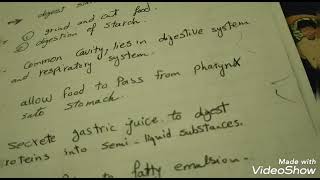 ① grind and cut food
② digestion of starch.
Common cavity, lies in digestive system
and respiratory system.
allow food to Pass from pharynx
into stomach.
secrete gastric juice to digest
proteins into semi-liquid substances.
fatty emulsion.
Made with
VideoShow